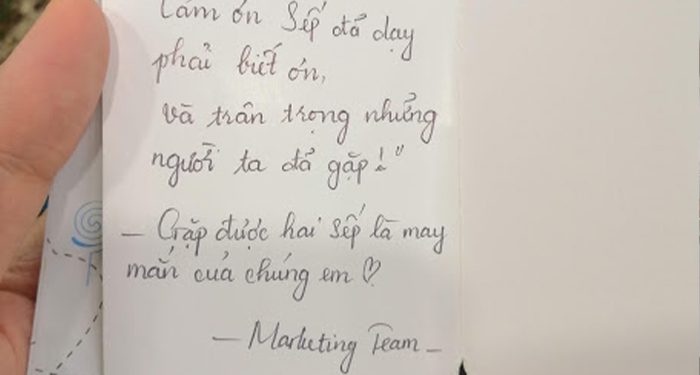 Cảm ơn Sếp đã dạy
phải biết ơn,
và trân trọng những
người ta đã gặp!"
— Gặp được hai Sếp là may
mắn của chúng em ♡
— Marketing Team —